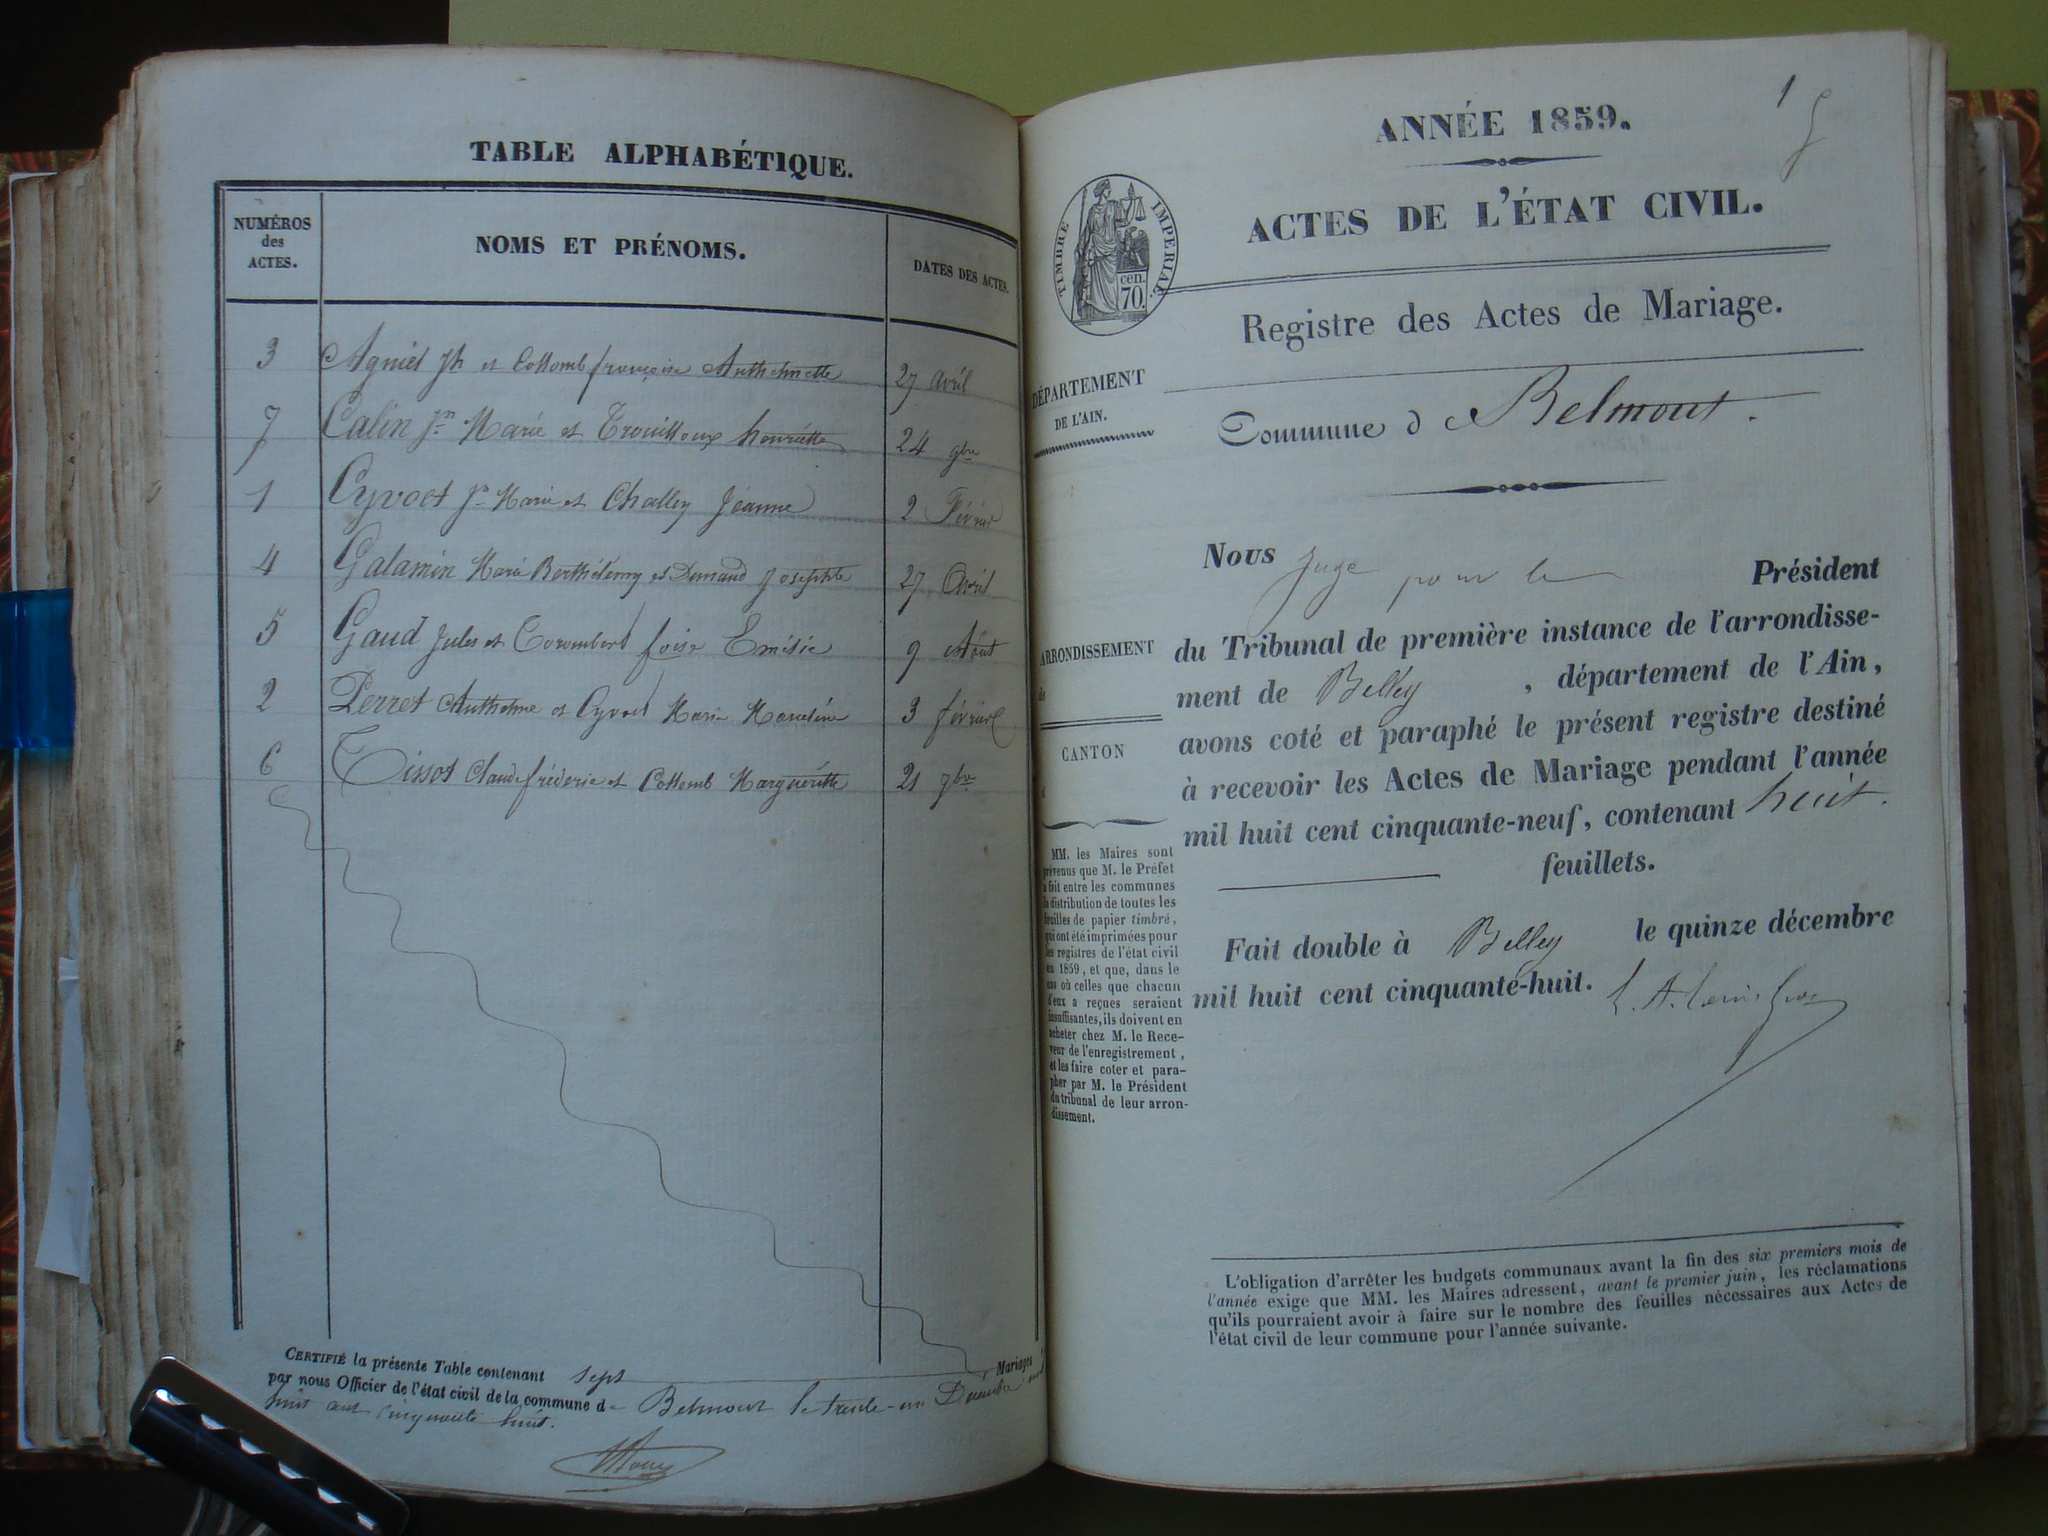 TABLE ALPHABÉTIQUE.
NUMÉROS
des
ACTES.
NOMS ET PRÉNOMS.
DATES DES ACTES.
3 Agniel Jh et Collomb françoise Anthelmette 27 Avril
7 Calin Jn Marie et Trouilloux henriette 24 9bre
1 Cyvoct Jn Marie et Challey Jeanne 2 Février
4 Galamin Marie Berthélémy et Demand Josephte 27 Avril
5 Gaud Jules et Corombert foise Emélie 9 Août
2 Perret Anthelme et Cyvoct Marie Marceline 3 février
6 Tissot Claude fréderic et Collomb Margueritte 21 7bre
CERTIFIÉ la présente Table contenant sept Mariages
par nous Officier de l'état civil de la commune de Belmont le trente-un Décembre mil
huit cent cinquante huit.
1
ANNÉE 1859.
ACTES DE L'ÉTAT CIVIL.
TIMBRE IMPERIAL.
cen.
70.
Registre des Actes de Mariage.
DÉPARTEMENT
DE L'AIN.
Commune de Belmont.
Nous Juge pour le Président
du Tribunal de première instance de l'arrondisse-
ment de Belley , département de l'Ain,
avons coté et paraphé le présent registre destiné
à recevoir les Actes de Mariage pendant l'année
mil huit cent cinquante-neuf, contenant huit
feuillets.
Fait double à Belley le quinze décembre
mil huit cent cinquante-huit.
ARRONDISSEMENT
de
CANTON
d
MM. les Maires sont
prévenus que M. le Préfet
a fait entre les communes
la distribution de toutes les
feuilles de papier timbré,
qui ont été imprimées pour
les registres de l'état civil
en 1859, et que, dans le
cas où celles que chacun
d'eux a reçues seraient
insuffisantes, ils doivent en
acheter chez M. le Rece-
veur de l'enregistrement,
et les faire coter et para-
pher par M. le Président
du tribunal de leur arron-
dissement.
L'obligation d'arrêter les budgets communaux avant la fin des six premiers mois de
l'année exige que MM. les Maires adressent, avant le premier juin, les réclamations
qu'ils pourraient avoir à faire sur le nombre des feuilles nécessaires aux Actes de
l'état civil de leur commune pour l'année suivante.